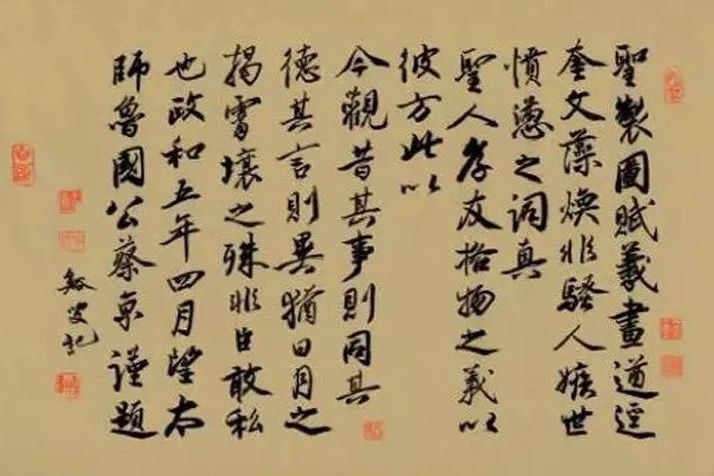 聖製圖賦義畫道
奎文藻煥非騷人嫉世
憤懣之詞真
聖人孝友格物之義以
彼方此以
今觀昔其事則同其
德其言則異猶日月之
揭霄壤之殊非臣敢私
也政和五年四月望太
師魯國公蔡京謹題
谿叟記